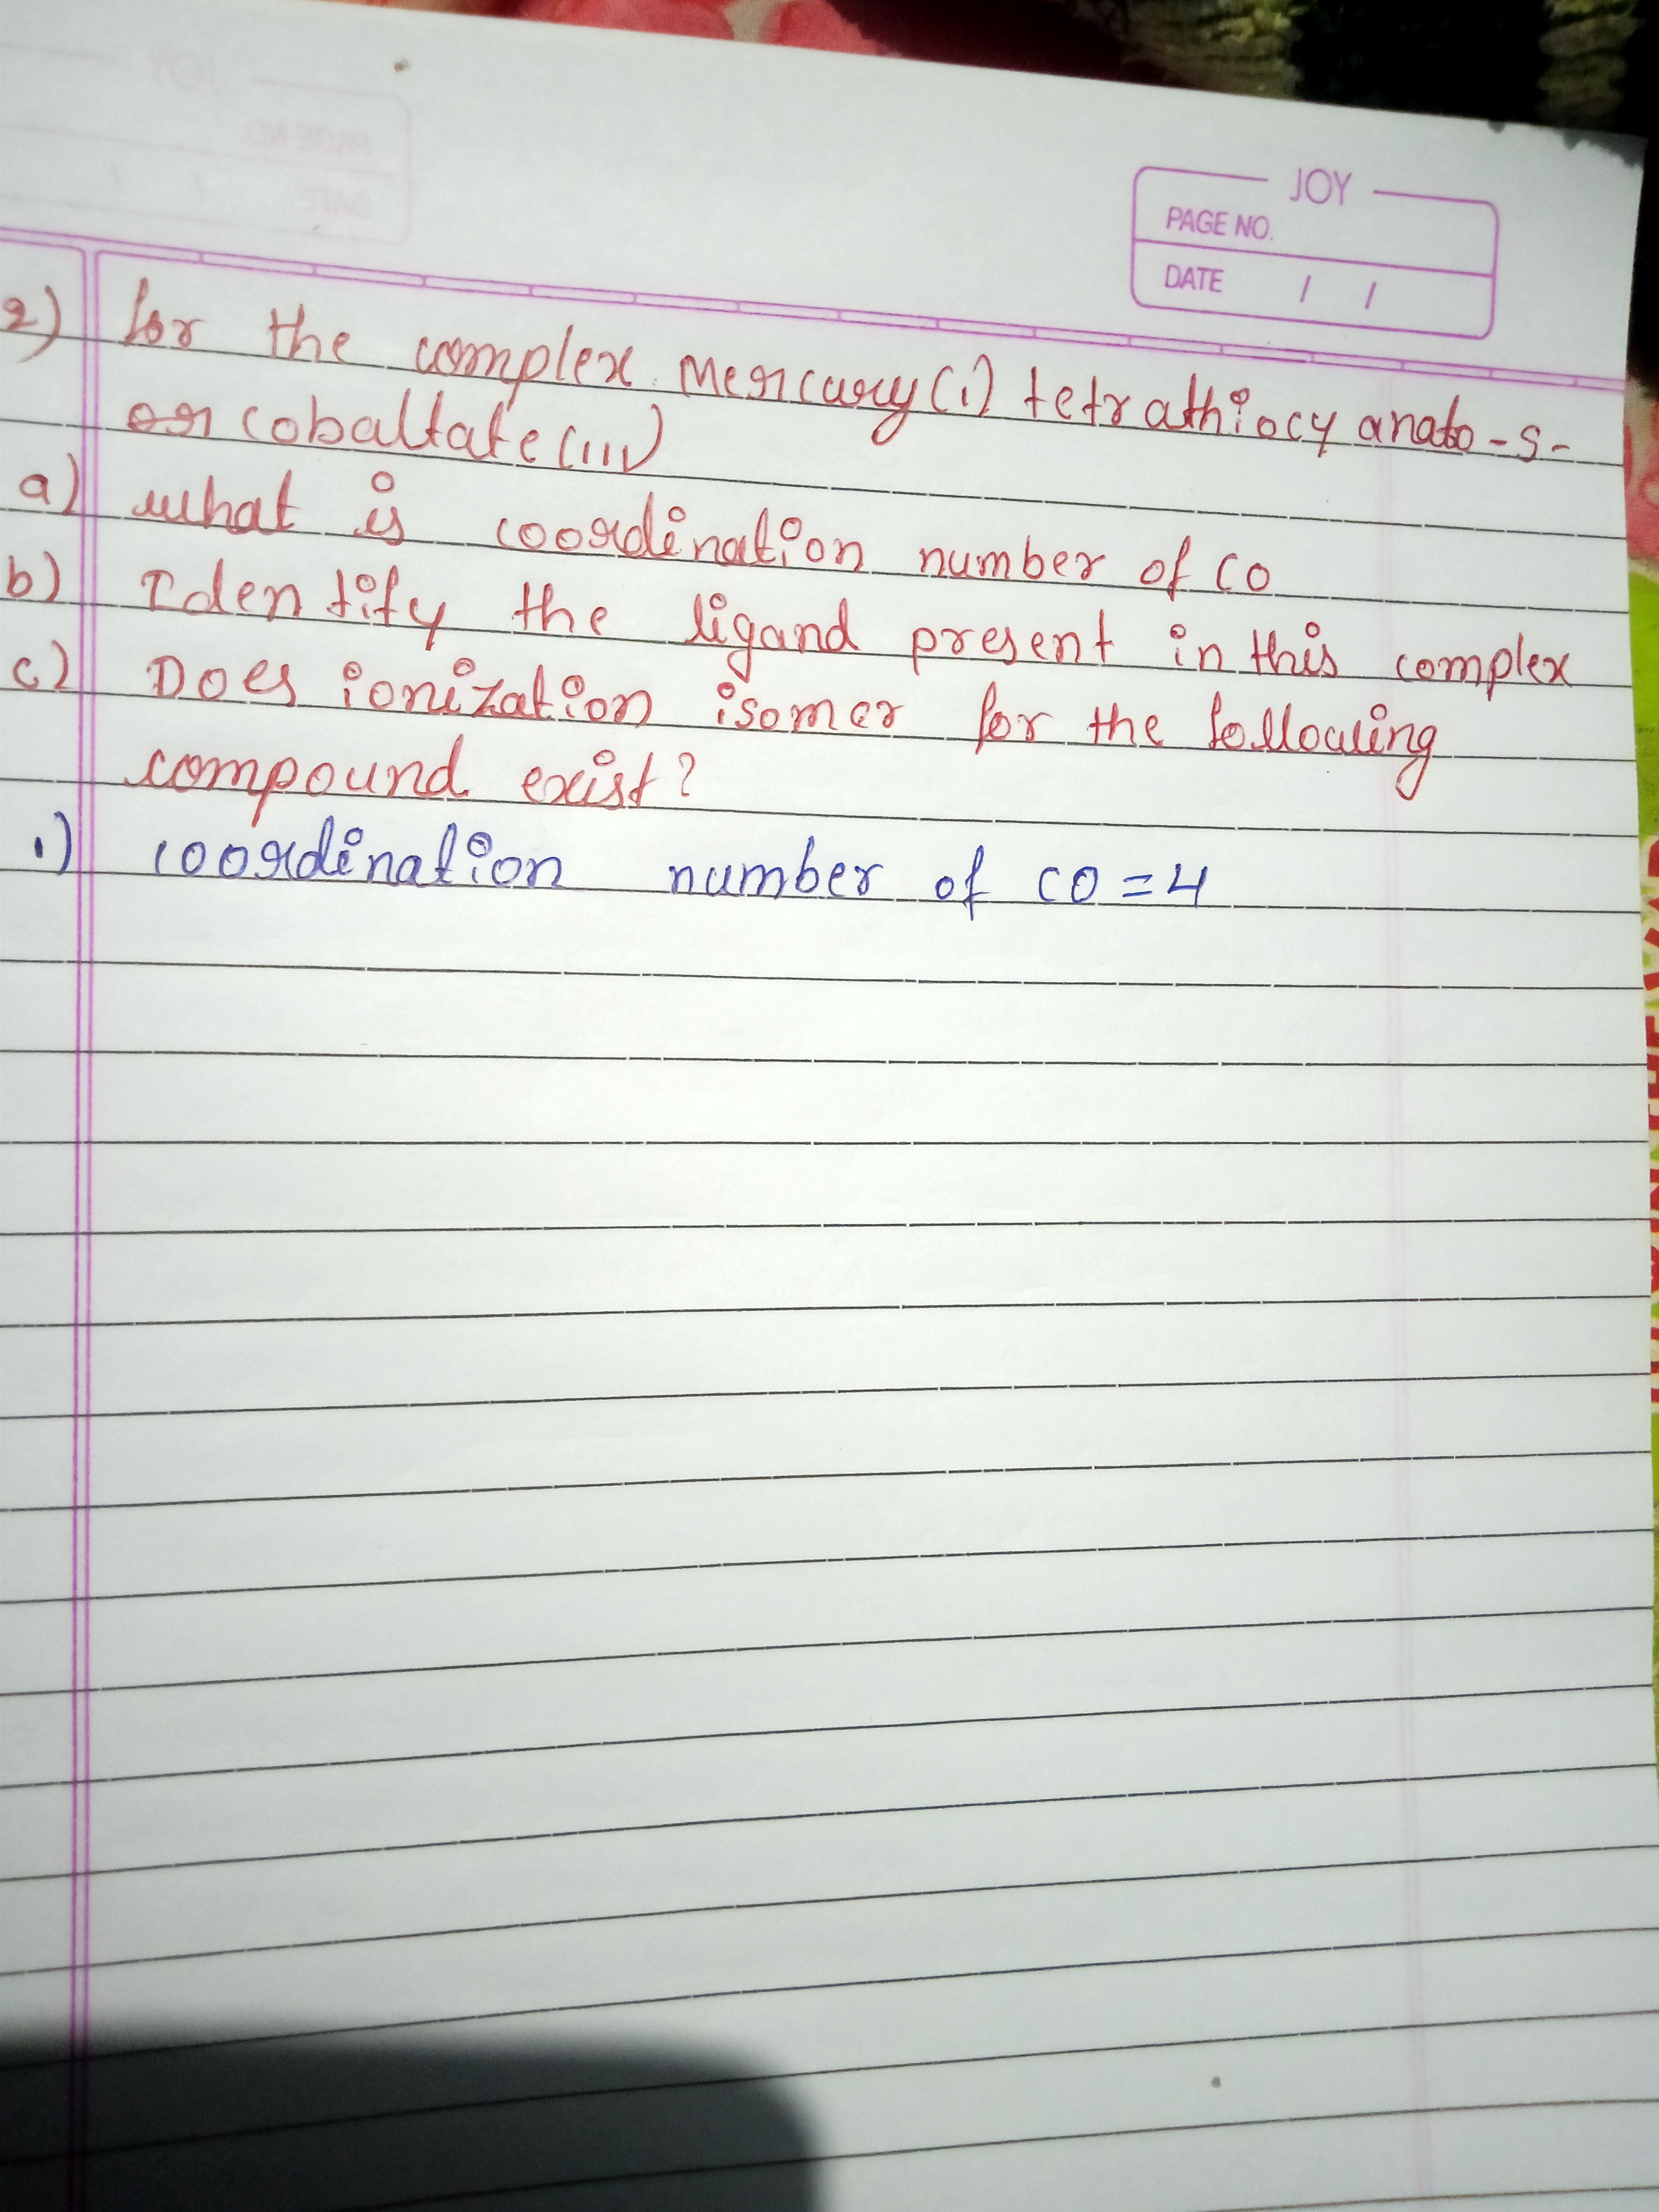 JOY
PAGE NO.
DATE / /
2) for the complex Mercury(i) tetrathiocyanato-s-
cobaltate(III)
a) what is coordination number of co
b) Identify the ligand present in this complex
c) Does ionization isomer for the following
compound exist?
1) coordination number of co = 4